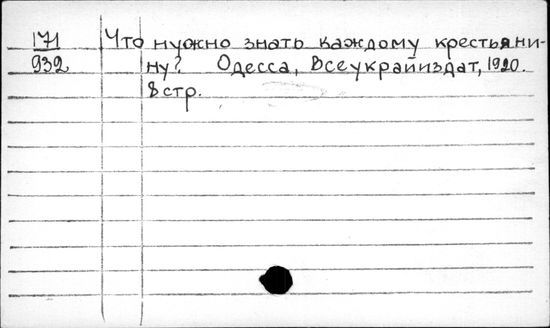 171 Что нужно знать каждому крестьяни-
932 ну? Одесса, Всеукрайиздат, 1920.
8 стр.